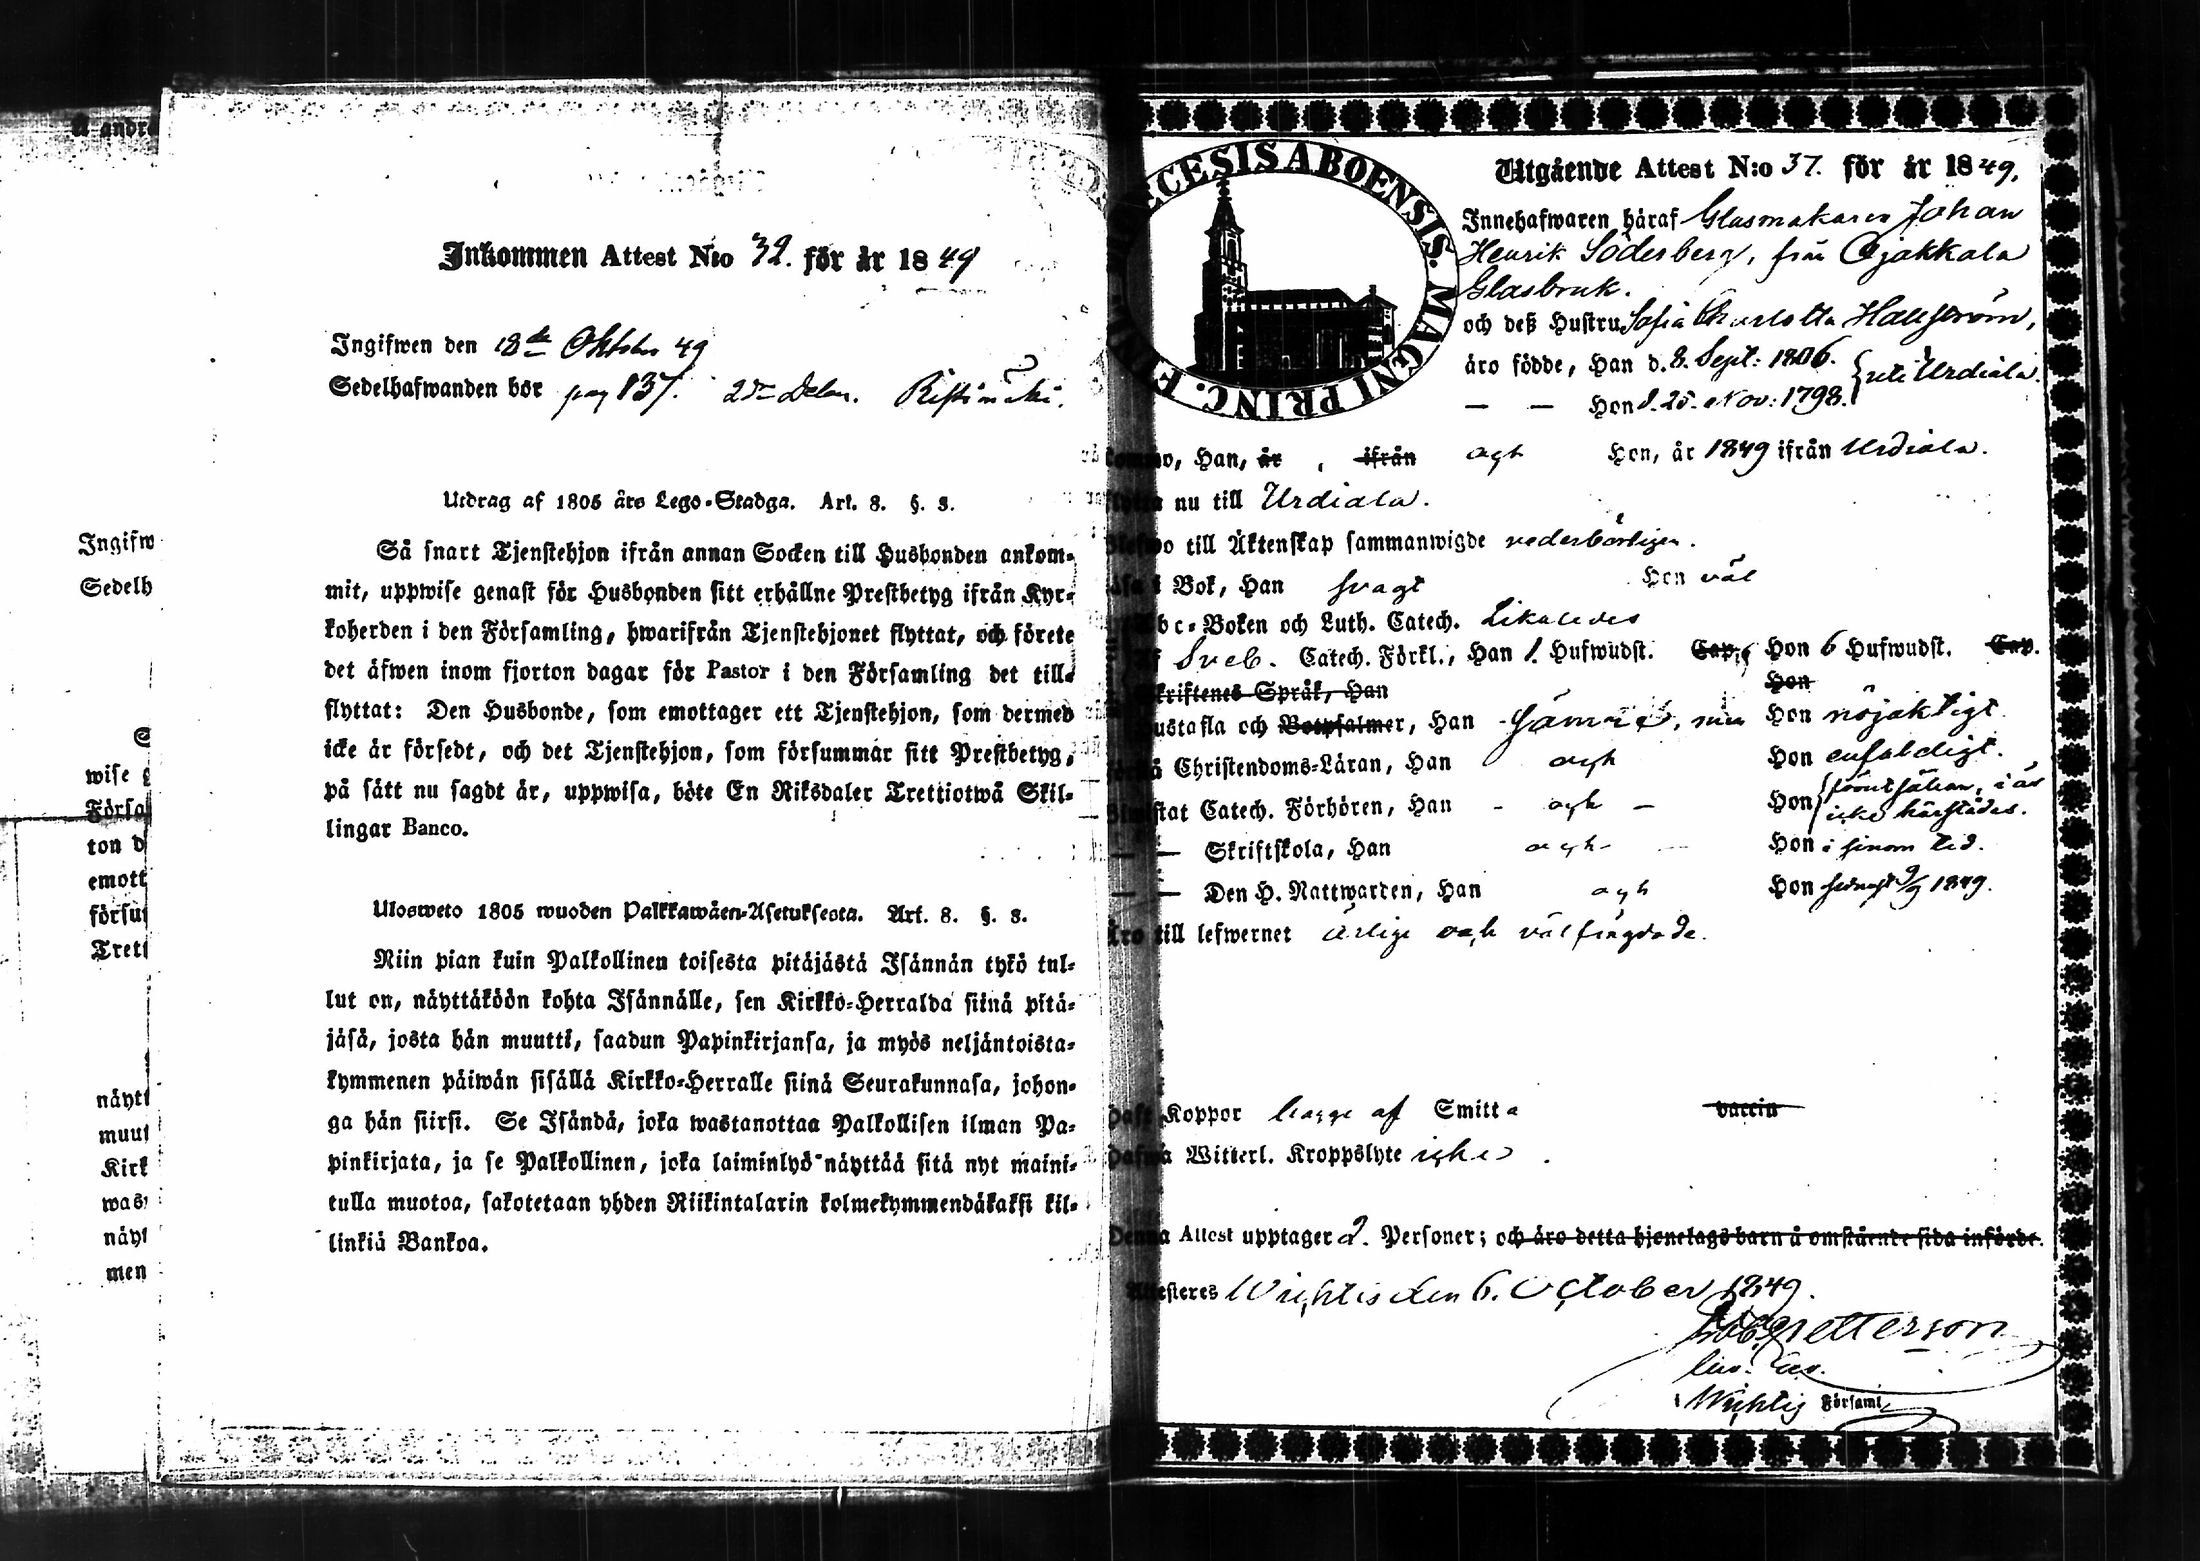 å andra
Ingifw
Sedelh
wise
Försa
ton d
emott
försu
Trett
näytt
muut
Kirk
was
näyt
men
Inkommen Attest N:o 32. för år 1849
Ingifwen den 18de Oktober 49
Sedelhafwanden bor pag 137. 2dra Delen.
Utdrag af 1805 års Lego-Stadga. Art. 8. §. 3.
Så snart Tjenstehjon ifrån annan Socken till Husbonden ankom-
mit, uppwise genast för Husbonden sitt erhållne Prestbetyg ifrån Kyr-
koherden i den Församling, hwarifrån Tjenstehjonet flyttat, och förete
det äfwen inom fjorton dagar för Pastor i den Församling det till-
flyttat: Den Husbonde, som emottager ett Tjenstehjon, som dermed
icke är försedt, och det Tjenstehjon, som försummar sitt Prestbetyg,
på sätt nu sagdt är, uppwisa, böte En Riksdaler Trettiotwå Skil-
lingar Banco.
Ulosweto 1805 wuoden Palkkawäen-Asetuksesta. Art. 8. §. 3.
Niin pian kuin Palkollinen toisesta pitäjästä Isännän tykö tul-
lut on, näyttäköön kohta Isännälle, sen Kirkko-Herralda siinä pitä-
jäsä, josta hän muutti, saadun Papinkirjansa, ja myös neljäntoista-
kymmenen päiwän sisällä Kirkko-Herralle siinä Seurakunnasa, johon-
ga hän siirsi. Se Isändä, joka wastanottaa Palkollisen ilman Pa-
pinkirjata, ja se Palkollinen, joka laiminlyö näyttää sitä nyt maini-
tulla muotoa, sakotetaan yhden Riikintalarin kolmekymmendäkaksi kil-
linkiä Bankoa.
CESIS ABOENSIS. MAGNI PRINC. FIN
Utgående Attest N:o 37. för år 1849.
Innehafwaren häraf Glasmakaren Johan
Henrik Söderberg, från Ojakkala
Glasbruk.
och deß Hustru Sofia Charlotta
äro födde, Han d. 8. Sept: 1806. uti Urdiala.
— — Hon d. 25. Nov: 1798.
Han, år , ifrån och Hon, år 1849 ifrån Urdiala.
nu till Urdiala.
till Äktenskap sammanwigde vederbörligen.
i Bok, Han svagt Hon väl
Abc-Boken och Luth. Catech. Likaledes
Af Sveb. Catech. Förkl., Han 1. Hufwudst. Cap., Hon 6 Hufwudst. Cap.
Skriftenes Språk, Han Hon
Hustafla och Botpsalmer, Han Hon nöjaktigt
Christendoms-Läran, Han och Hon enfaldigt.
Catech. Förhören, Han - och - Hon i år
icke härstädes.
— — Skriftskola, Han och - Hon i sinom tid.
— — Den H. Nattwarden, Han och Hon sednast 9/9 1849.
Äro till lefwernet ärlige och välfrägdade.
Haft Koppor begge af Smitta vaccin
Hafwa Witterl. Kroppslyte icke.
Denna Attest upptager 2. Personer; och äro detta hjonelags barn å omstående sida införde.
Attesteres Wichtis den 6. October 1849.
Petterson
Wichtis Församl